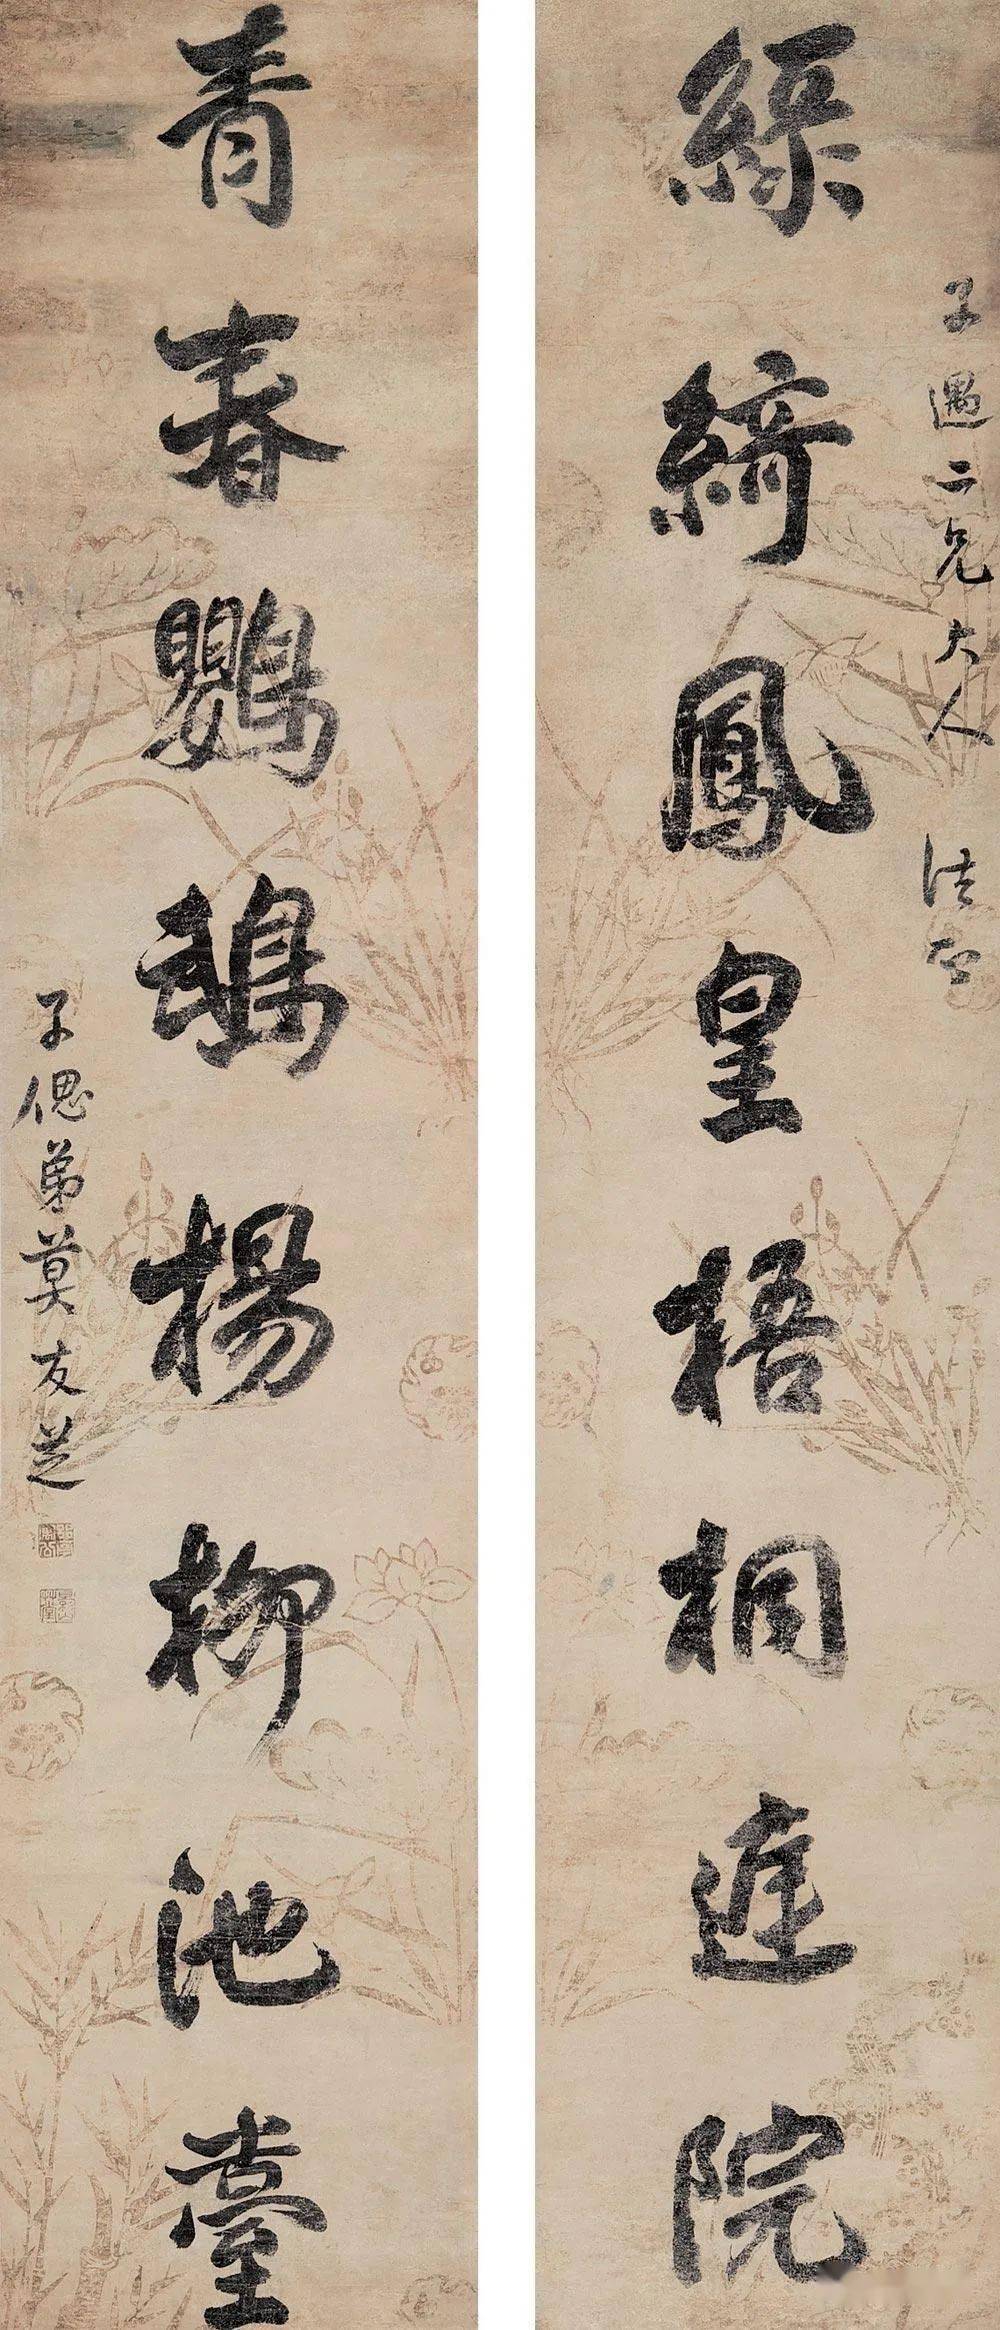 子遇二兄大人 法正
綠綺鳳皇梧桐庭院
青春鸚鵡楊柳池臺
子偲弟莫友芝